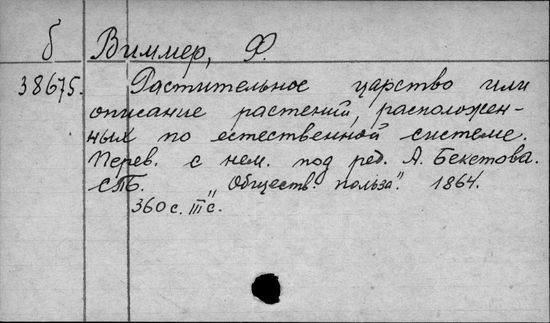 б Виммер, Ф.
38675. Растительное царство или
описание растений, расположен-
ных по естественной системе.
Перев. с нем. под ред. А. Бекетова.
СПБ. "Обществ. польза". 1864.
360 с. III с.